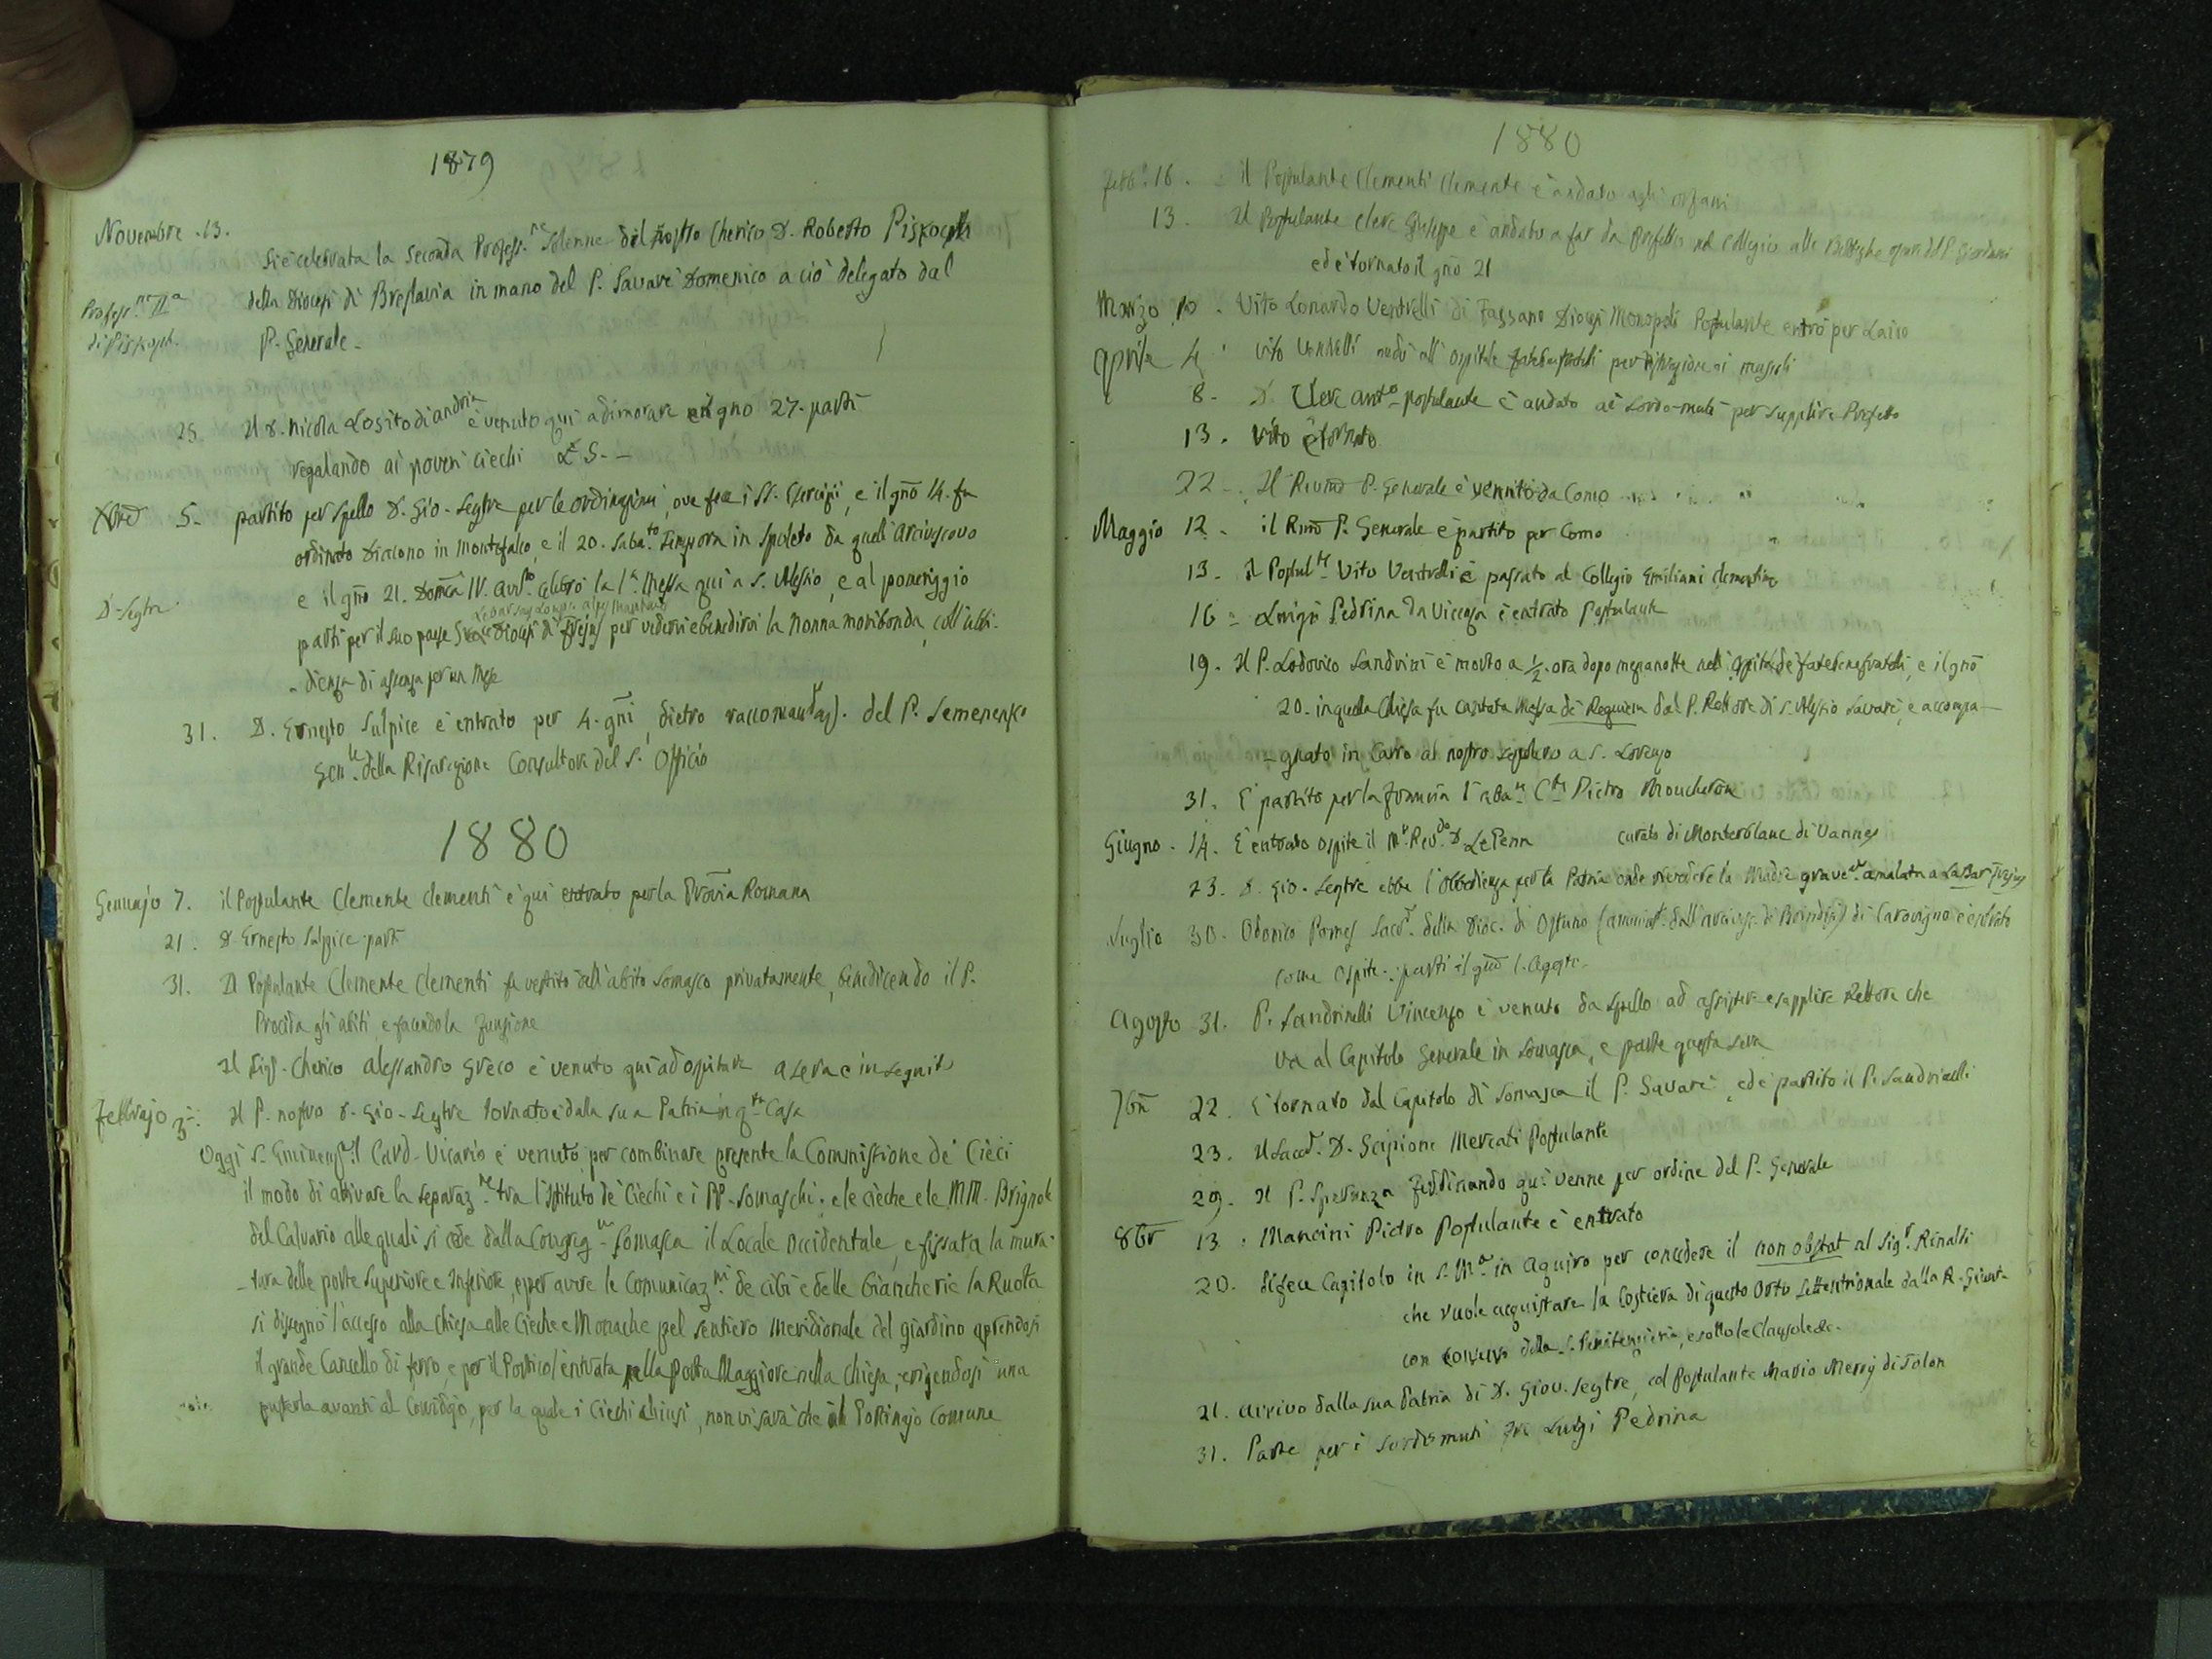 1879
Novembre . 13.
Si è celebrata la seconda Profess.ne Solenne del nostro Cherico D. Roberto
Profess.ne IIa
della Diocesi di Breslavia in mano del P. Savarè Domenico a ciò delegato dal
P. Generale.
25. Il D. Nicola Losito di andria è venuto qui a dimorare e il gno 27. partì
regalando ai poveri ciechi £ 5. -
5. partito per Spello D. Gio. Segtre per le ordinazioni, ove fece i SS. Esercizi, e il gno 14. fu
ordinato Diacono in Montefalco, e il 20. Saba.to Tempora in Spoleto da quell'Arcivescovo
D. Segtre
e il gno 21. Domca IV. Avv.to celebrò la 1a Messa qui a S. Alessio, e al pomeriggio
partì per il suo paese Diocesi di Frejus per vedervi e benedirvi la Nonna moribonda, coll'ubbi-
- dienza di assenza per un Mese
31. D. Ernesto Sulpice è entrato per 4. gni, dietro del P. Semenenko
Gen.le della Risurezione Consultore del S. Officio
1880
Gennajo 7. il Postulante Clemente Clementi è qui entrato per la Provia Romana
21. D. Ernesto Sulpice partì
31. Il Postulante Clemente Clementi fu vestito dell'abito Somasco privatamente, benedicendo il P.
Procida gli abiti e facendo la funzione
Il Sigr. Cherico Alessandro Greco è venuto qui ad ospitare a sera e in seguito
Febbrajo 3. Il P. nostro D. Gio. Segtre tornato è dalla sua Patria in q.ta Casa
Oggi S. Eminenza il Card. Vicario è venuto per combinare presente la Commissione de' Ciechi
il modo di attivare la separaz.ne tra l'Istituto de' Ciechi e i PP. Somaschi; e le cieche e le MM. Brignole
del Calvario alle quali si cede dalla Congreg.ne Somasca il Locale Occidentale, e fissata la mura-
- tura delle porte superiore e Inferiore, e per avere le Comunicaz.ni de' cibi e delle biancherie la Ruota
si disegnò l'accesso alla chiesa alle Cieche e Monache pel sentiero Meridionale del giardino aprendosi
il grande Cancello di ferro, e per il Portico l'entrata nella Porta Maggiore nella Chiesa, erigendosi una
avanti al Corridojo, per la quale i Ciechi chiusi, non vi sarà che il Portinajo Comune
1880
Febb.o 16. il Postulante Clementi Clemente è andato agli orfani
13. Il Postulante Clerc Giuseppe è andato a far da Prefetto nel Collegio alle
ed è tornato il gno 21
Marzo 10. Vito Lonardo Ventrelli di Fassano Diocesi Monopoli Postulante entrò per Laico
Aprile 4. Vito Ventrelli andò all'ospitale ai muscoli
8. D. Clerc Ant.o postulante è andato ai Sordo-muti per supplire Prefetto
13. Vito è tornato
22. Il Revmo P. Generale è venuto da Como
Maggio 12. il Rmo P. Generale è partito per Como
13. Il Postul.te Vito Ventrelli è passato al Collegio Emiliani Clementino
16. Luigi Pedrina da Vicenza è entrato Postulante
19. Il P. Lodovico Sandrini è morto a ½ ora dopo mezzanotte nell'Ospital de' Fatebenefratelli, e il gno
20. in quella Chiesa fu cantata Messa de Requiem dal P. Rettore di S. Alessio Savarè, e accompa-
- gnato in Carro al nostro sepolcro a S. Lorenzo
31. È partito per la Francia l'aba.te C.te Pietro Moucheron
Giugno . 14. È entrato ospite il M.o Rev.do D. Le Penn curato di Monterblanc di Vannes
23. D. Gio. Segtre ebbe l'Obbedienza per la Patria onde rivedere la Madre grave.te amalata a Le Bar Frejus
Luglio 30. Odorico Pomes Sacd. della Dioc. di Ostuno di Carovigno è entrato
come ospite: partì il gno 1. Agosto.
Agosto 31. P. Sandrinelli Vincenzo è venuto da Spello ad assistere e supplire Rettore che
va al Capitolo Generale in Somasca, e parte questa sera
7bre 22. È tornato dal Capitolo di Somasca il P. Savarè, ed è partito il P. Sandrinelli
23. Il Sacd. D. Scipione Mercati Postulante
29. Il P. Speranza Ferdinando qui venne per ordine del P. Generale
8br 13. Mancini Pietro Postulante è entrato
20. Si fece Capitolo in S. M.a in Aquiro per concedere il non obstat al Sigr. Rinaldi
che vuole acquistare la Costiera di questo Orto Settentrionale dalla R. Giunta
con della S. Penitenzieria, e sotto le Clausole &c.
21. Arrivo dalla sua Patria di D. Giov. Segtre, col Postulante Mario Merry di Tolon
31. Parte per i Sordomuti Fra Luigi Pedrina